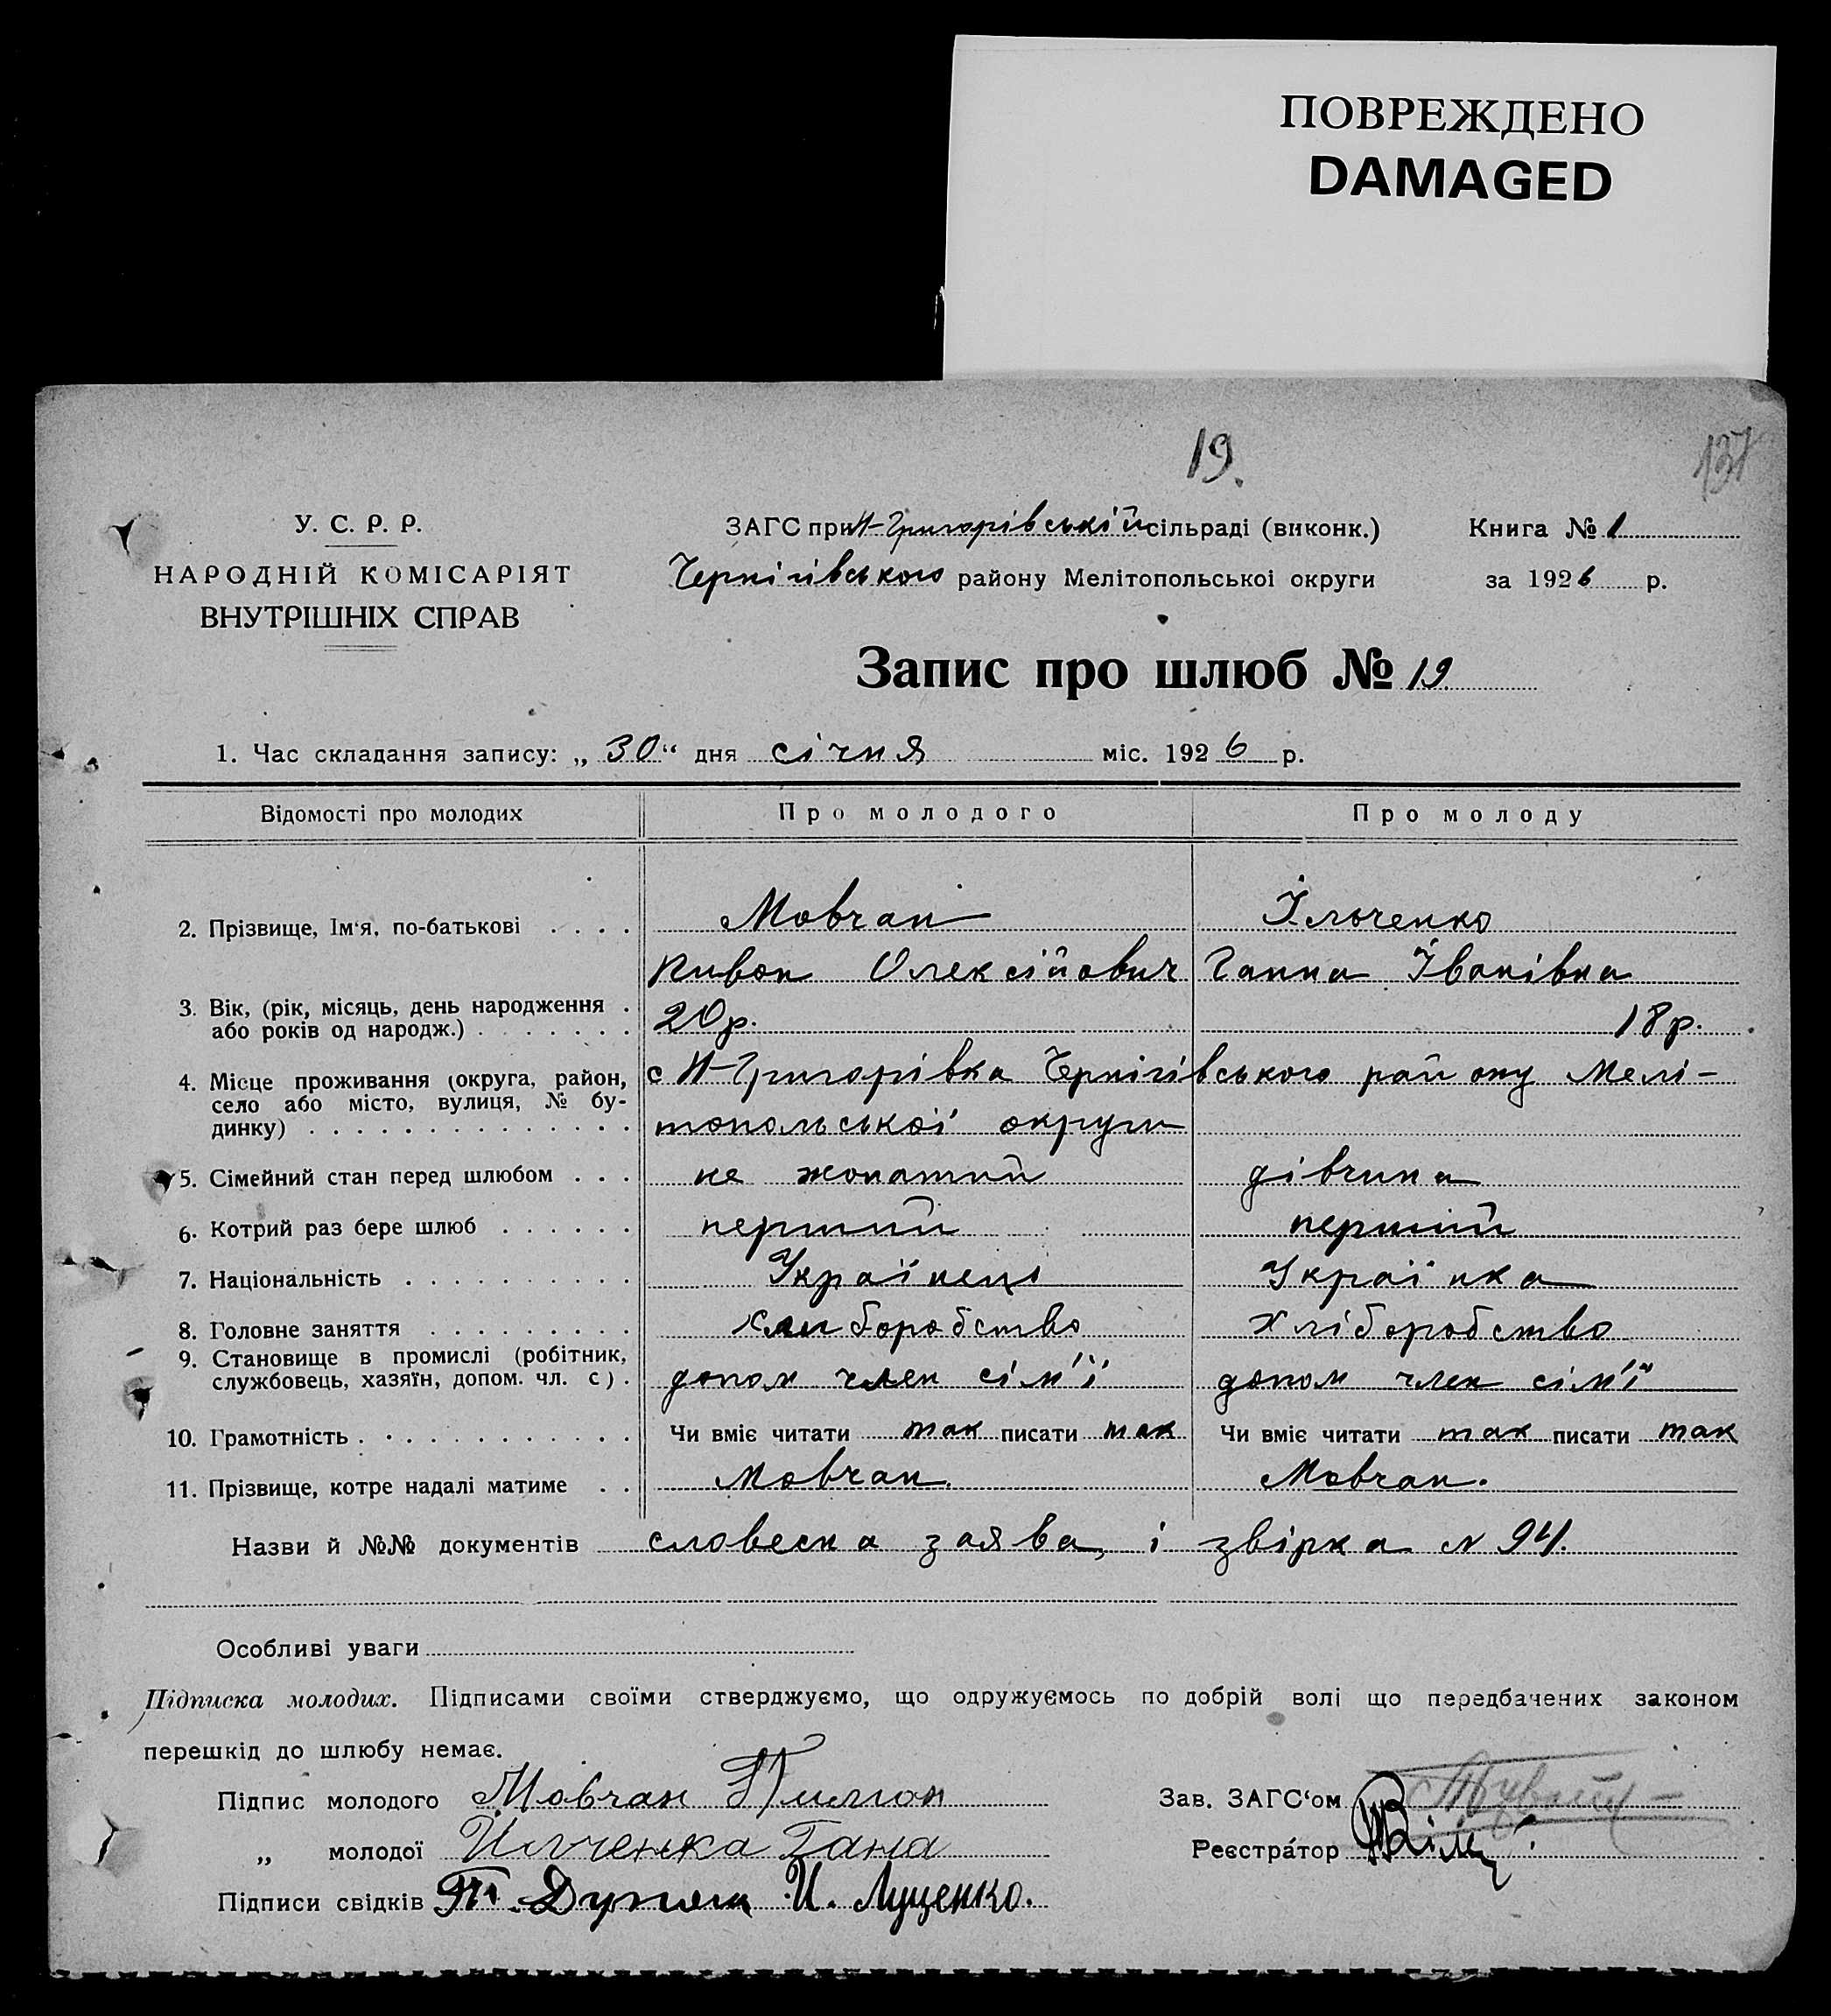 ПОВРЕЖДЕНО
DAMAGED
19.
137
У. С. Р. Р.
НАРОДНІЙ КОМІСАРІЯТ
ВНУТРІШНІХ СПРАВ
ЗАГС при Н-Григорівській сільраді (виконк.)
Чернігівського району Мелітопольської округи
Книга № 1
за 1926 р.
Запис про шлюб № 19
1. Час складання запису: „30“ дня січня міс. 1926 р.
Відомості про молодих Про молодого Про молоду
2. Прізвище, Ім‘я, по-батькові . . . . Мовчан Ільченко
Пивон Олексійович Ганна Іванівна
3. Вік, (рік, місяць, день народження .
або років од народж.) . . . . . . . 20 р. 18 р.
4. Місце проживання (округа, район, с Н-Григорівка Чернігівського району Мелі-
село або місто, вулиця, № бу-
динку) . . . . . . . . . . . . . . топольської округи
5. Сімейний стан перед шлюбом . . . не жонатий дівчина
6. Котрий раз бере шлюб . . . . . . перший перший
7. Національність . . . . . . . . . . Українець Українка
8. Головне заняття . . . . . . . . . хлиборобство хліборобство
9. Становище в промислі (робітник,
службовець, хазяїн, допом. чл. с) . допом член сім'ї допом член сім'ї
10. Грамотність . . . . . . . . . . . . Чи вміє читати так писати так Чи вміє читати так писати так
11. Прізвище, котре надалі матиме . . Мовчан. Мовчан.
Назви й №№ документів словесна заява, і звірка № 94.
Особливі уваги
Підписка молодих. Підписами своїми стверджуємо, що одружуємось по добрій волі що передбачених законом
перешкід до шлюбу немає.
Підпис молодого Мовчан Пимон
Зав. ЗАГС‘ом
„ молодої Илченка Гана
Реєстра́тор
Підписи свідків П. И. Луценко.